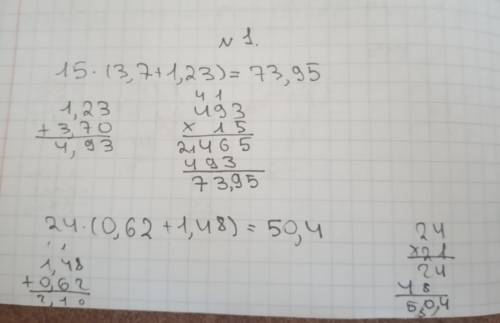 № 1.
15·(3,7+1,23)=73,95
1,23
+ 3,70
4,93
4 1
493
× 15
2465
493
73,95
24·(0,62+1,48)=50,4
1,48
+0,62
2,10
24
×21
24
48
50,4